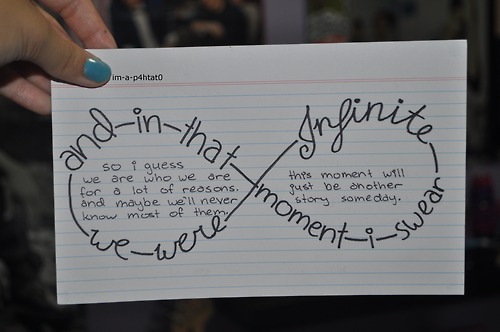 im-a-p4htat0
and-in-that
moment-i-swear
we-were
Infinite
so i guess
we are who we are
for a lot of reasons.
and maybe we'll never
know most of them.
this moment will
just be another
story someday.